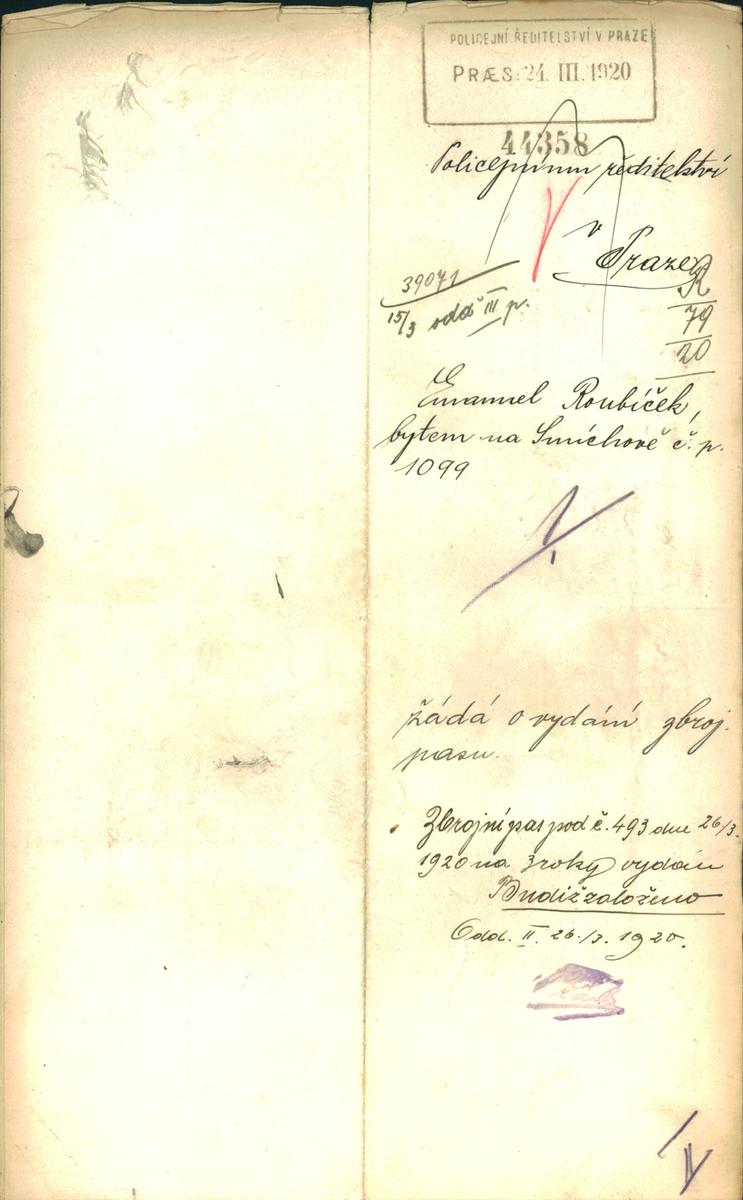 POLICEJNÍ ŘEDITELSTVÍ V PRAZE
PRÆS: 24. III. 1920
44358
Policejnímu ředitelství
v
Praze
R
79
20
39071
15/3 odd III p.
Emanuel Roubíček,
bytem na Smíchově č. p.
1099
žádá o vydání zbroj.
pasu.
Zbrojní pas pod č. 493 dne 26/3.
1920 na 3 roky vydán
Budiž založeno
Odd. II. 26./3. 1920.